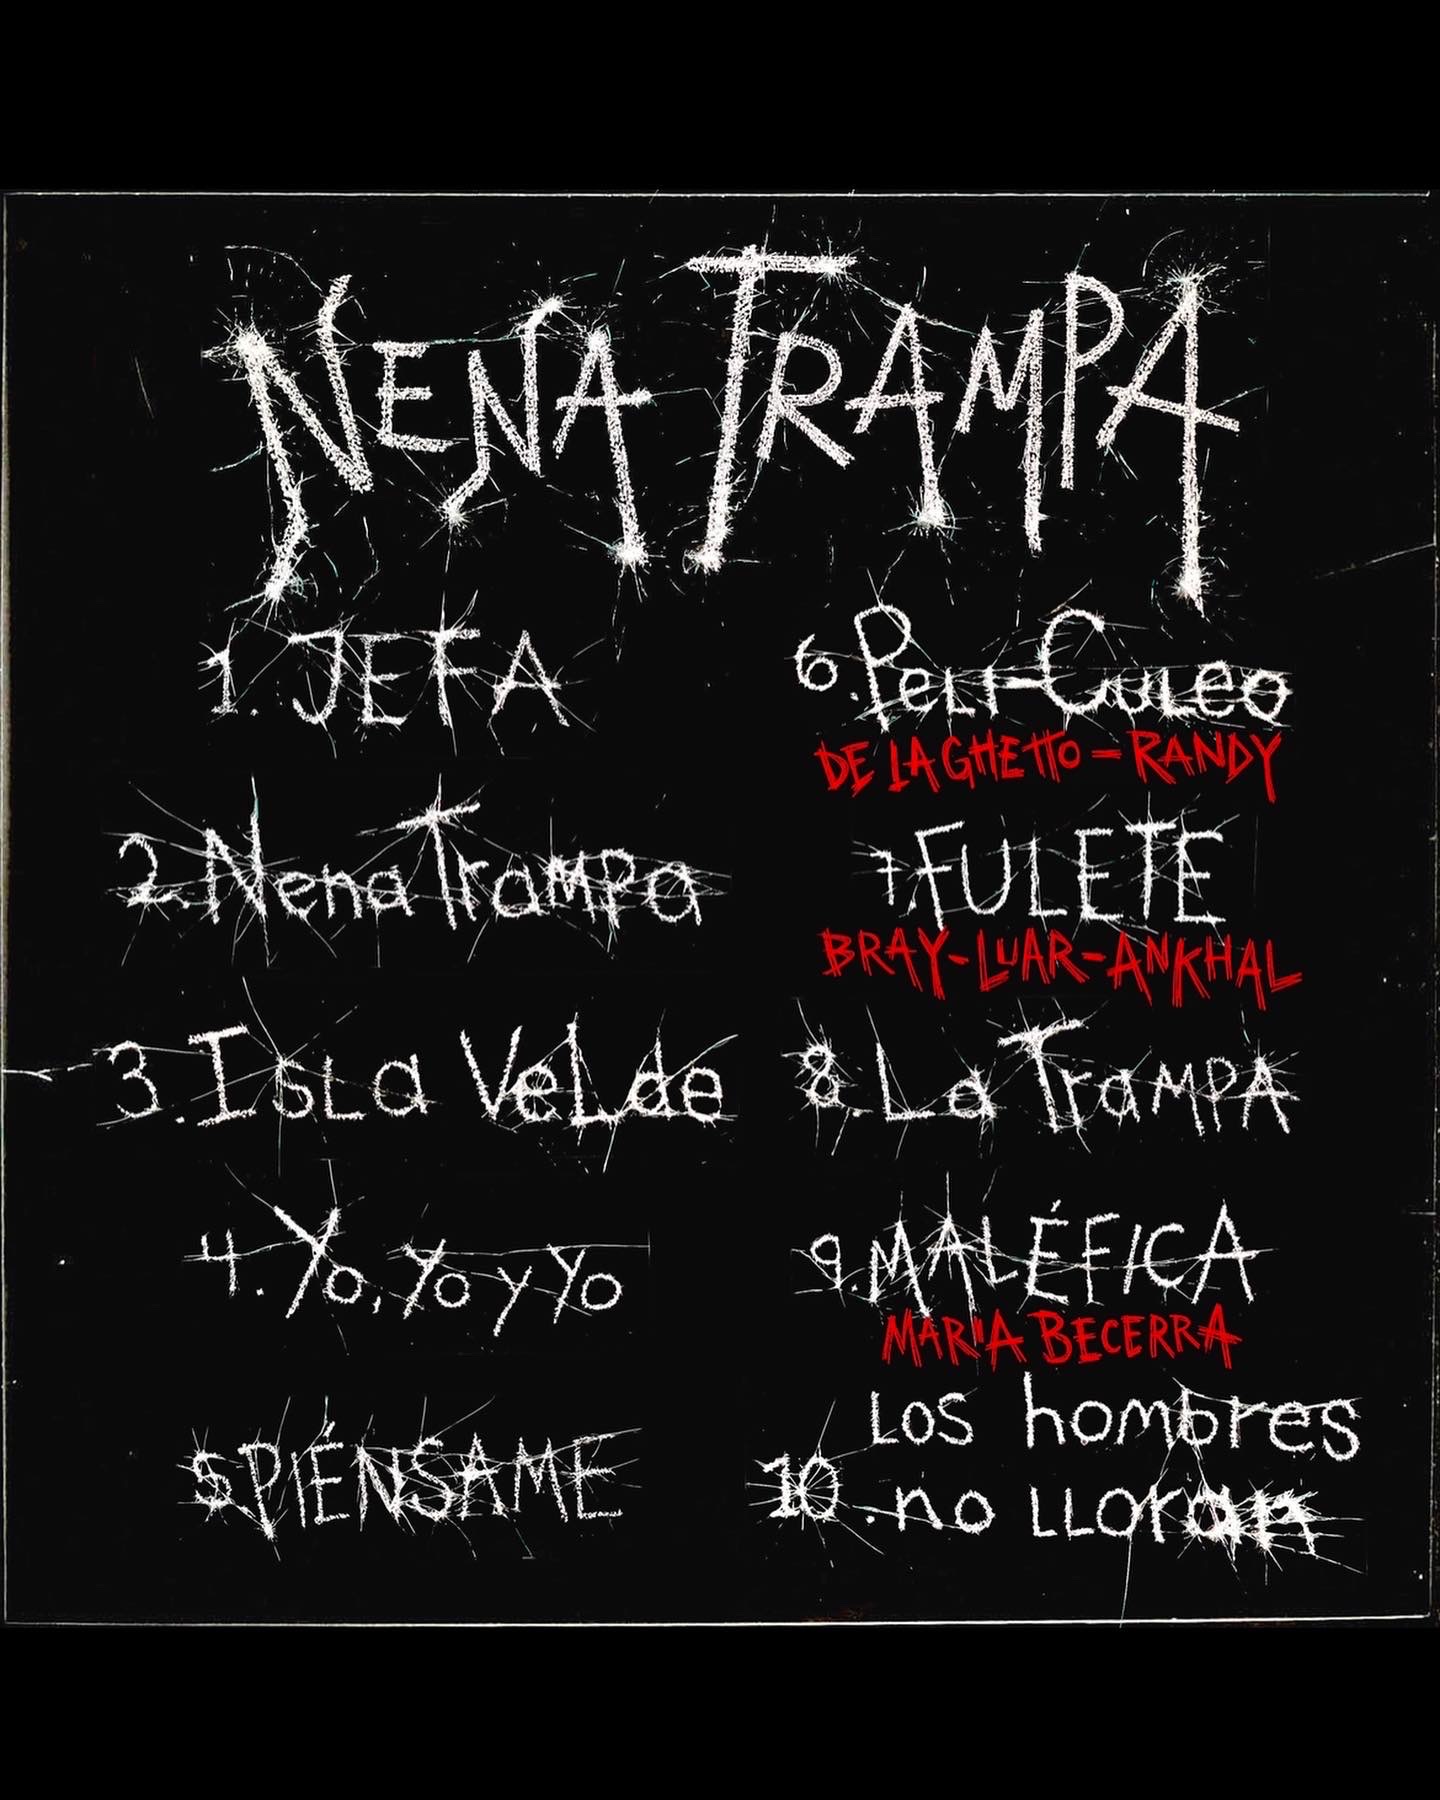 NENA TRAMPA
1. JEFA
2. Nena Trampa
3. Isla Velde
4. Yo, Yo y Yo
5. PIÉNSAME
6. Peli-Culeo
DE LA GHETTO - RANDY
7. FULETE
BRAY-LUAR-ANKHAL
8. La Trampa
9. MALÉFICA
MARIA BECERRA
10. Los hombres
no lloran